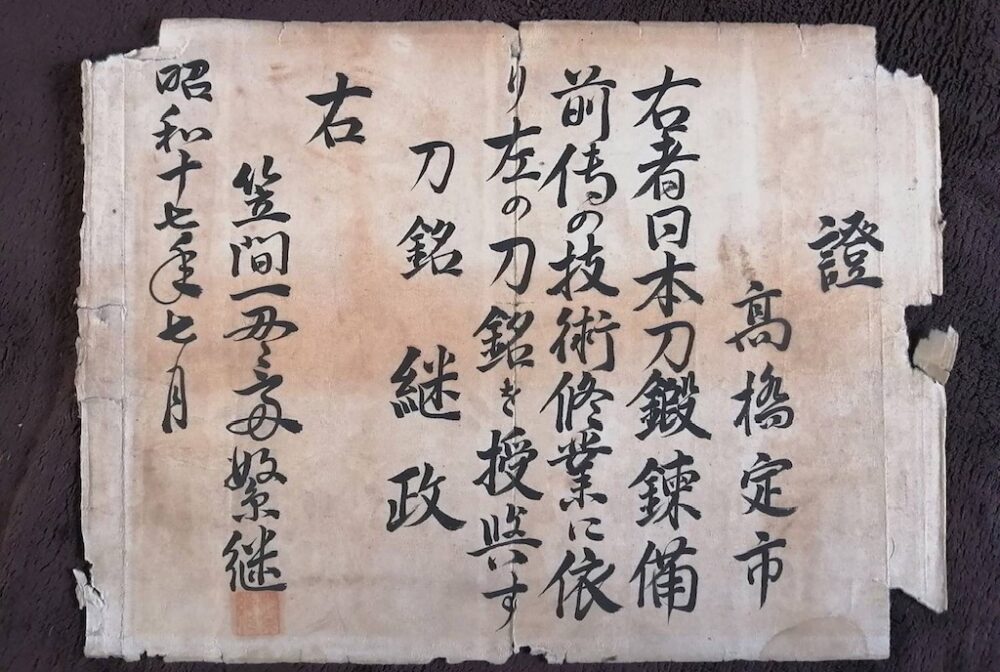 證
髙橋定市
右者日本刀鍛鍊備
前傳の技術修業に依
り左の刀銘を授與す
刀銘 継政
右
笠間一貫斎繁継
昭和十七年七月